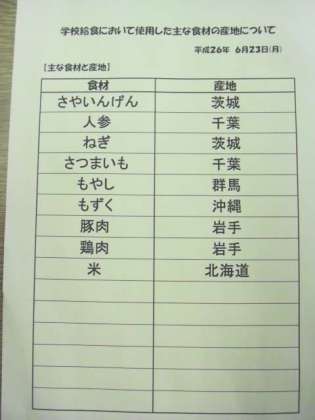 学校給食において使用した主な食材の産地について
平成26年 6月23日(月)
【主な食材と産地】
食材 産地
さやいんげん 茨城
人参 千葉
ねぎ 茨城
さつまいも 千葉
もやし 群馬
もずく 沖縄
豚肉 岩手
鶏肉 岩手
米 北海道